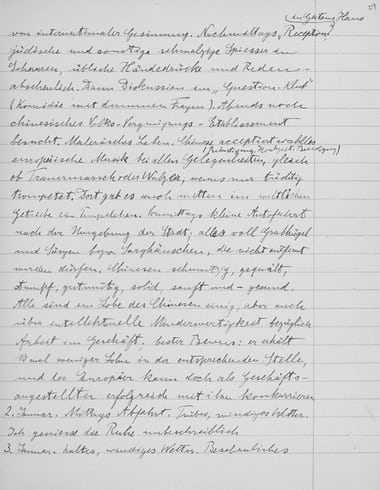 29
(in Gattons Haus)
von internationaler Gesinnung. Nachmittags, Reception
jüdische und sonstige schmalzige Spiesser in
Scharen, übliche Händedrücke und Reden -
abscheulich. Dann Diskussion im „Question-Klub"
(Komödie mit dummen Fragen). Abends noch
chinesisches Volks-Vergnügungs-Etablissement
besucht. Malerisches Leben. Chinese acceptiert wahllos
(Beerdigung, Hochzeit, Bewegung)
europäische Musik bei allen Gelegenheiten, gleich
ob Trauermarsch oder Walzer, wenns nur tüchtig
trompetet. Dort gab es auch mitten im weltlichen
Getriebe ein Tempelchen. Vormittags kleine Autofahrt
nach der Umgebung der Stadt; alles voll Grabhügel
und Särgen bezw. Sarghäuschen, die nicht entfernt
werden dürfen, Chinesen schmutzig, gequält,
stumpf, gutmütig, solid, sanft und - gesund.
Alle sind im Lobe des Chinesen einig, aber auch
über intellektuelle Minderwertigkeit bezüglich
Arbeit im Geschäft. bester Beweis: er erhält
10 mal weniger Lohn in der entsprechenden Stelle,
und der Europäer kann doch als Geschäfts-
angestellter erfolgreich mit ihm konkurrieren
2. Januar. Mittags Abfahrt. Trübes, windiges Wetter.
Ich geniesse die Ruhe unbeschreiblich
3. Januar. kaltes, windiges Wetter. Beschauliches